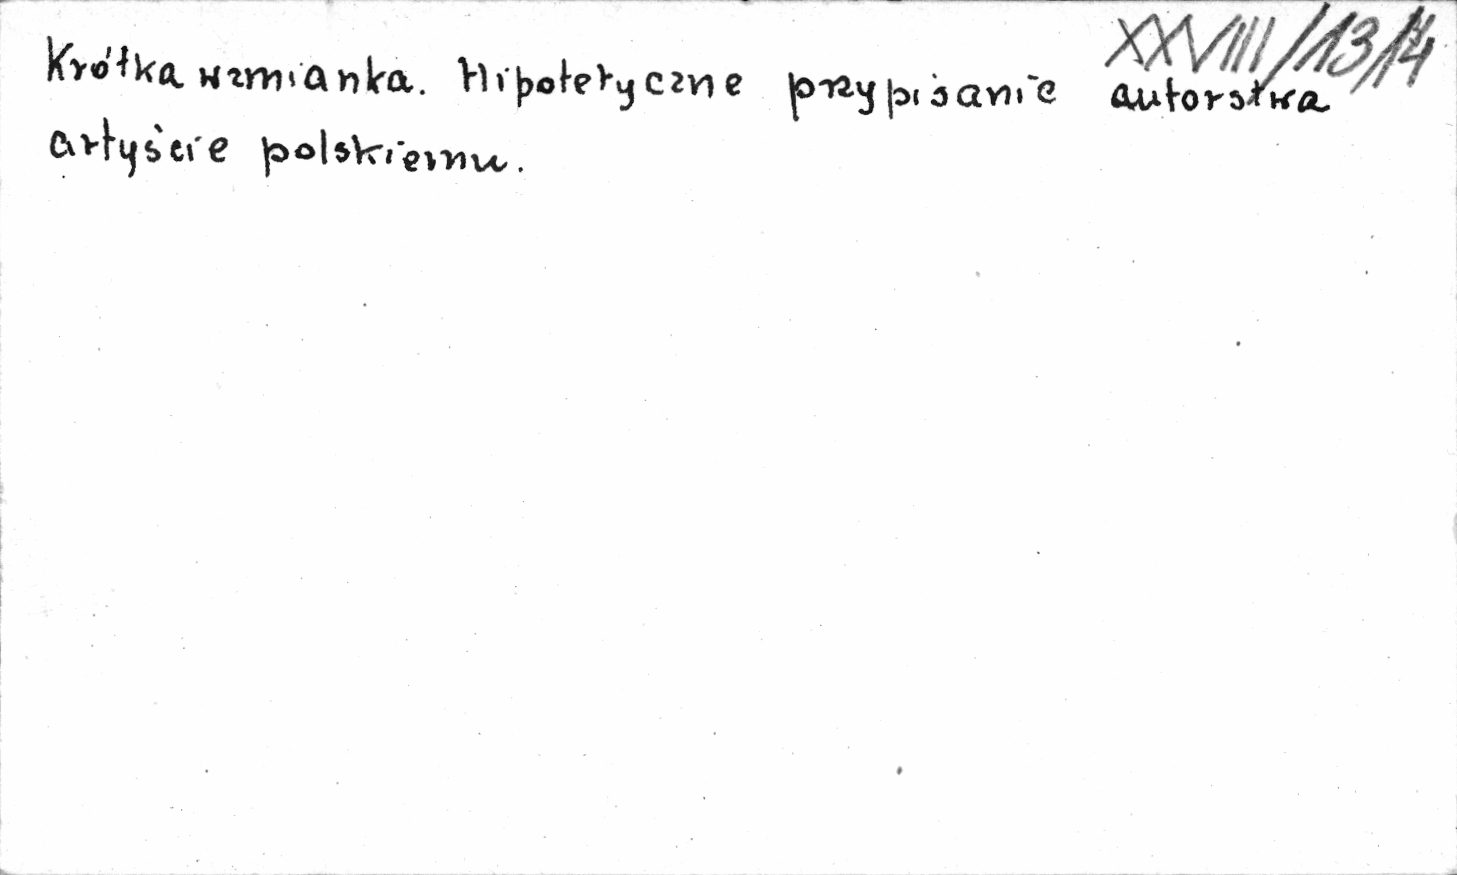 XXVIII/13/14
Krótka wzmianka. Hipotetyczne przypisanie autorstwa
artyście polskiemu.